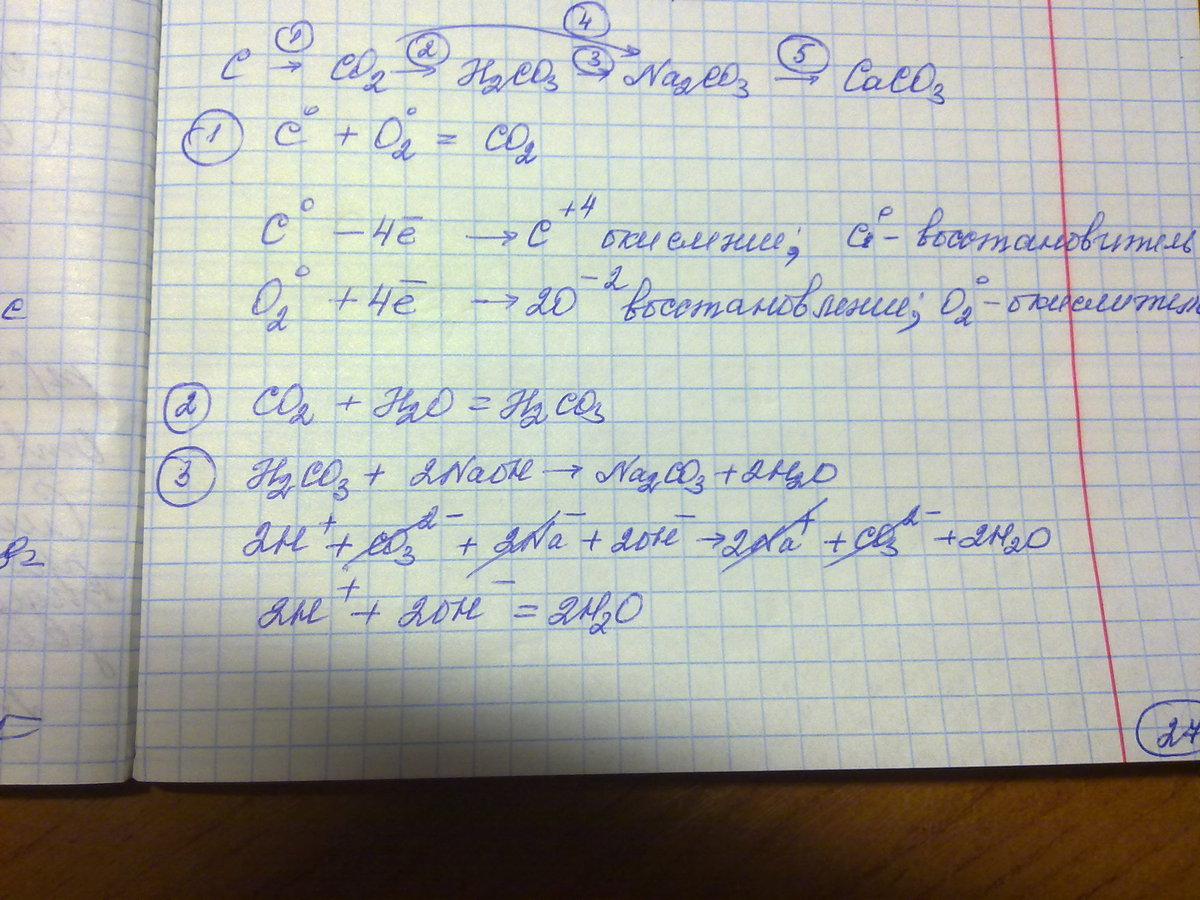 C →① CO₂ →② H₂CO₃ →③ Na₂CO₃ →⑤ CaCO₃
④
① C⁰ + O₂⁰ = CO₂
C⁰ – 4ē → C⁺⁴ окисление; C⁰ – восстановитель
O₂⁰ + 4ē → 2O⁻² восстановление; O₂⁰ – окислитель
② CO₂ + H₂O = H₂CO₃
③ H₂CO₃ + 2NaOH → Na₂CO₃ + 2H₂O
2H⁺ + CO₃²⁻ + 2Na⁻ + 2OH⁻ → 2Na⁺ + CO₃²⁻ + 2H₂O
2H⁺ + 2OH⁻ = 2H₂O
27